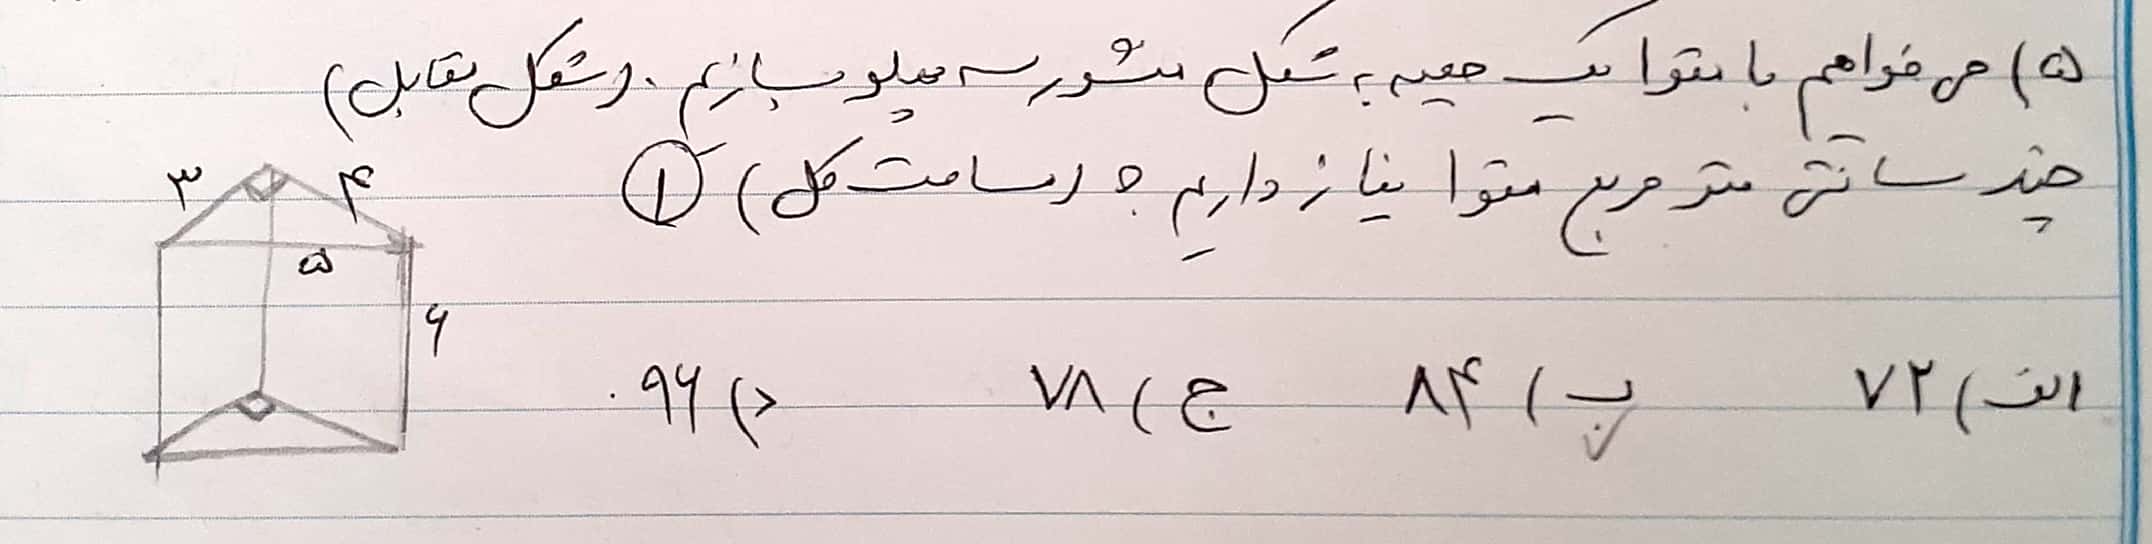 ۵) می خواهم با مقوا یک جعبه به شکل منشور سه پهلو بسازیم. (شکل مقابل)
چند سانتی متر مربع مقوا نیاز داریم؟ (مساحت کل) ۱
۳ ۴
۵
۶
الف) ۷۲ ب) ۸۴ ج) ۷۸ د) ۹۶